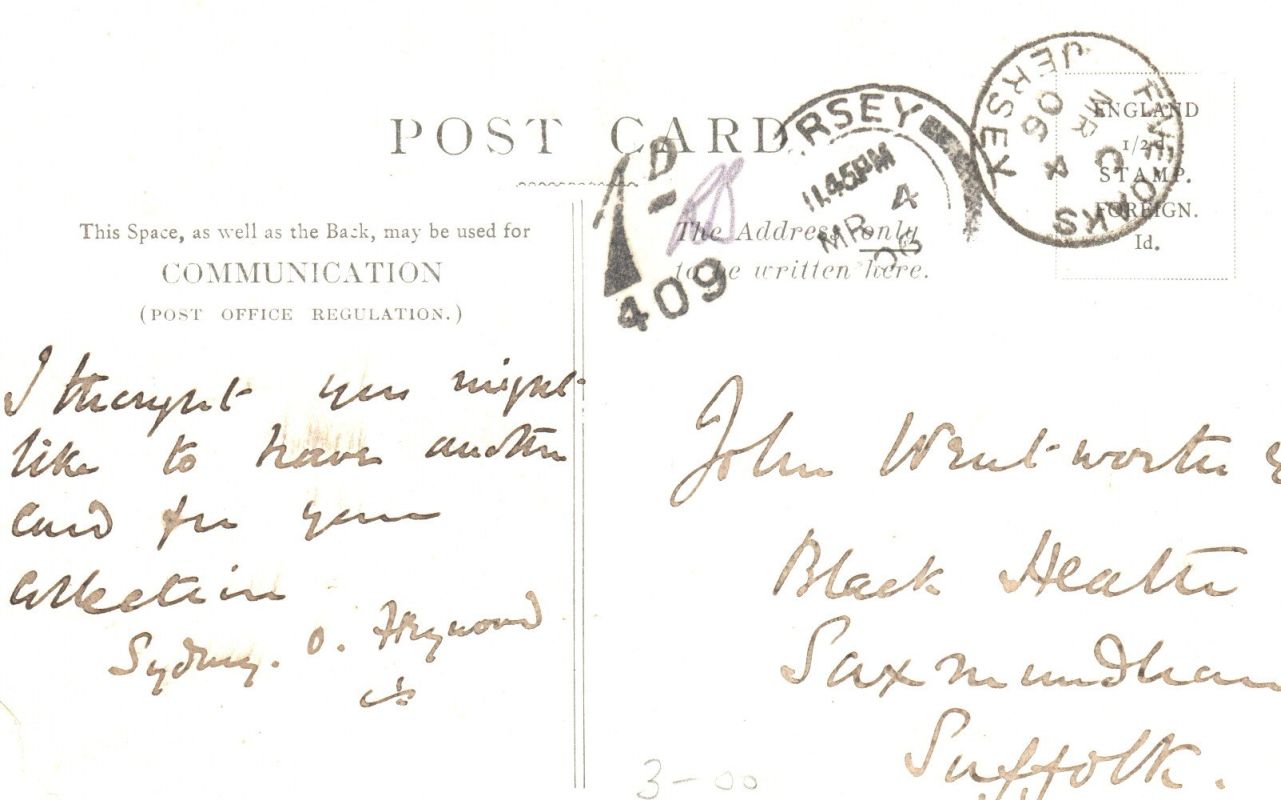 POST CARD
This Space, as well as the Back, may be used for
COMMUNICATION
(POST OFFICE REGULATION.)
The Address only
to be written here.
ENGLAND
1/2d.
STAMP.
FOREIGN.
1d.
JERSEY
FIVE OAKS
C
MR 4
06
RSEY
11.45PM
MR 4
06
1D
409
I thought you might
like to have another
card for your
collection
Sydney. O. Heywood
John Wentworth
Black Heath
Saxmundham
Suffolk.
3-00